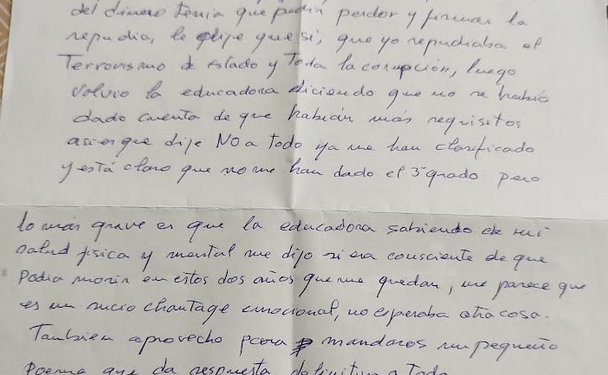 del dinero tenía que pedir perdon y firmar la
repudia, le dije que si, que yo repudiaba el
Terrorismo de Estado y Toda la corrupción, luego
volvio la educadora diciendo que no se había
dado cuenta de que habían más requisitos
asi es que dije NO a Todo ya me han clasificado
y está claro que no me han dado el 3º grado pero
lo más grave es que la educadora sabiendo de mi
salud física y mental me dijo si era consciente de que
podia morir en estos dos años que me quedan, me parece que
es un sucio chantage emocional, no esperaba otra cosa.
Tambien aprovecho para mandaros un pequeño
Poema que da respuesta definitiva a Todo